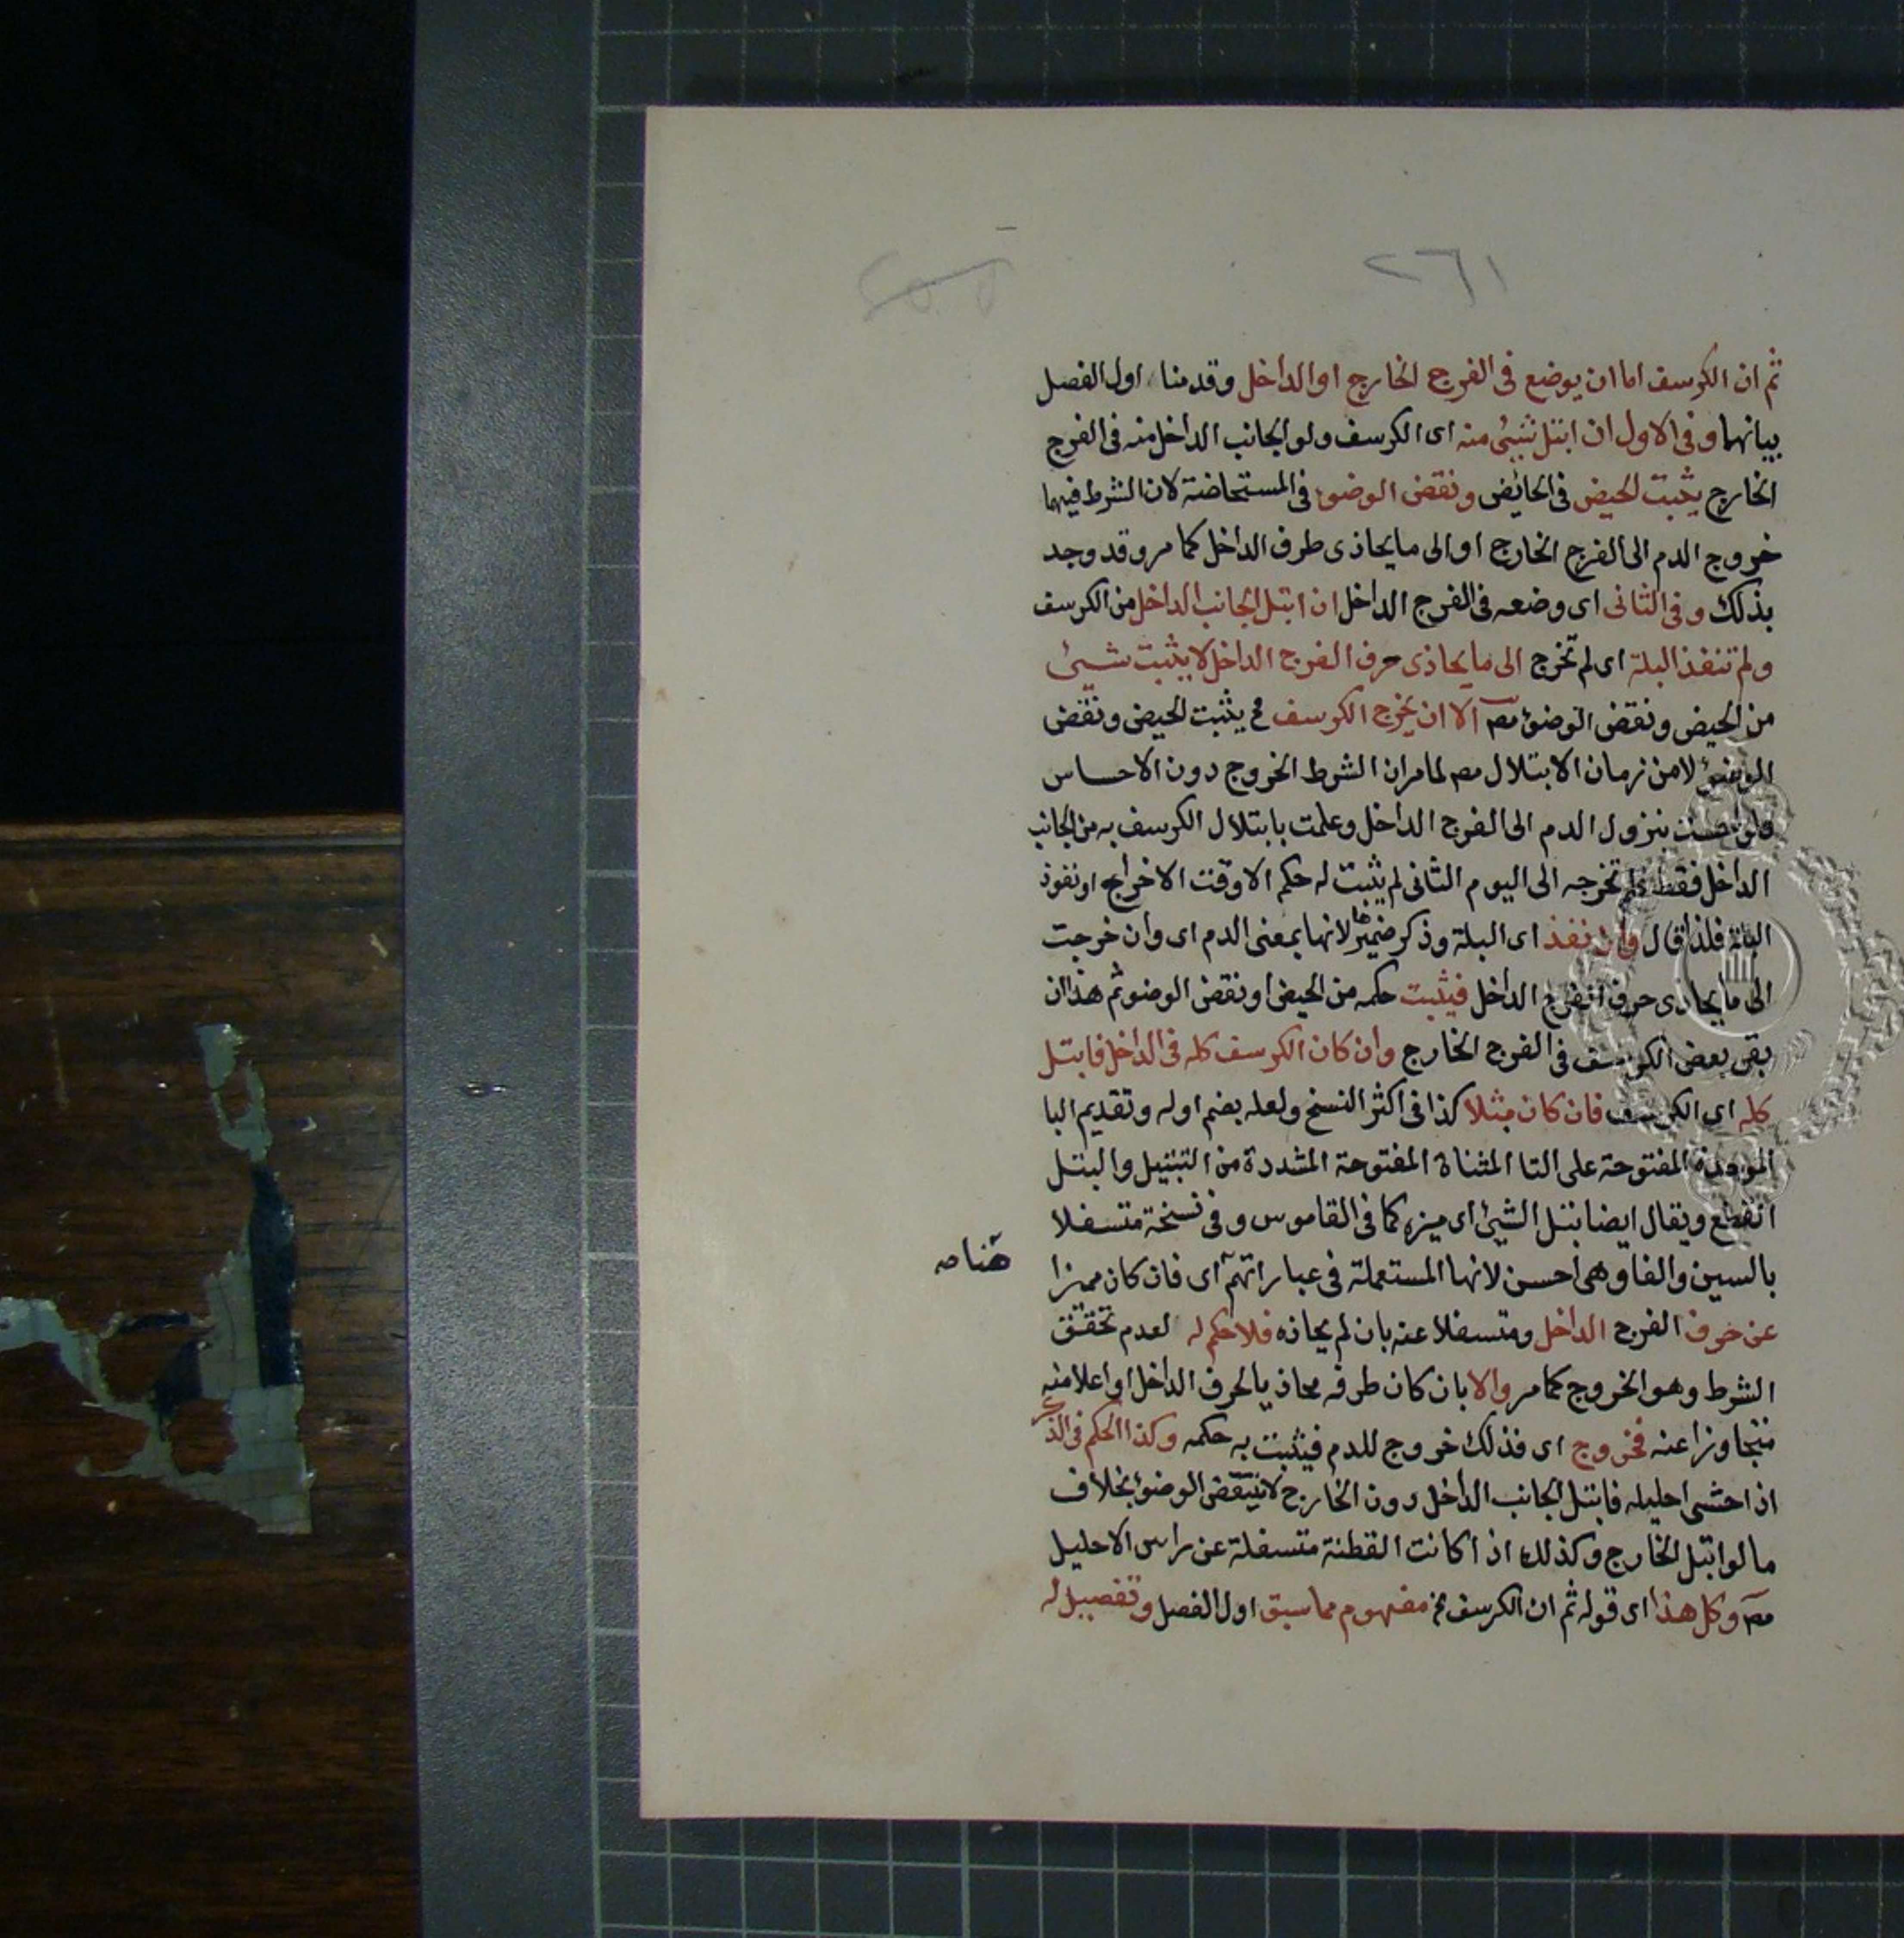 ٢٦١
ثم ان الكرسف اما ان يوضع فى الفرج الخارج او الداخل وقدمنا اول الفصل
بيانهما وفى الاول ان ابتل شئ منه اى الكرسف ولو الجانب الداخل منه فى الفرج
الخارج يثبت الحيض فى الحائض ونقض الوضوء فى المستحاضة لان الشرط فيهما
خروج الدم الى الفرج الخارج او الى ما يحاذى طرف الداخل كما مر وقد وجد
بذلك وفى الثانى اى وضعه فى الفرج الداخل ان ابتل الجانب الداخل من الكرسف
ولم تنفذ البلة اى لم تخرج الى ما يحاذى حرف الفرج الداخل لا يثبت شئ
من الحيض ونقض الوضوء مص الا ان يخرج الكرسف فح يثبت الحيض ونقض
الوضوء لا من زمان الابتلال مص لما مر ان الشرط الخروج دون الاحساس
فلو احست بنزول الدم الى الفرج الداخل وعلمت بابتلال الكرسف به من الجانب
الداخل فقط فلم تخرجه الى اليوم الثانى لم يثبت له حكم الا وقت الاخراج او نفوذ
البلة فلذا قال وان نفذ اى البلة وذكر ضميرها لانها بمعنى الدم اى وان خرجت
الى ما يحاذى حرف الفرج الداخل فيثبت حكمه من الحيض او نقض الوضو ثم هذا ان
بقى بعض الكرسف فى الفرج الخارج وان كان الكرسف كله فى الداخل فابتل
كله اى الكرسف فان كان مبتلا كذا فى اكثر النسخ ولعله بضم اوله وتقديم البا
الموحدة المفتوحة على التا المثناة المفتوحة المشددة من التبتيل والبتل
انقطع ويقال ايضا بتل الشئ اى ميزه كما فى القاموس وفى نسخة متسفلا
بالسين والفا وهى احسن لانها المستعملة فى عباراتهم اى فان كان مميزا
هنا مص
عن حرف الفرج الداخل ومتسفلا عنه بان لم يحاذه فلا حكم له لعدم تحقق
الشرط وهو الخروج كما مر والا بان كان طرفه محاذيا لحرف الداخل او اعلا منه
متجاوزا عنه فخروج اى فذلك خروج للدم فيثبت به حكمه وكذا الحكم فى الذكر
اذا حشى احليله فابتل الجانب الداخل دون الخارج لا ينتقض الوضوء بخلاف
ما لو ابتل الخارج وكذلك اذا كانت القطنة متسفلة عن راس الاحليل
مص وكل هذا اى قوله ثم ان الكرسف الخ مفهوم مما سبق اول الفصل وتفصيل له